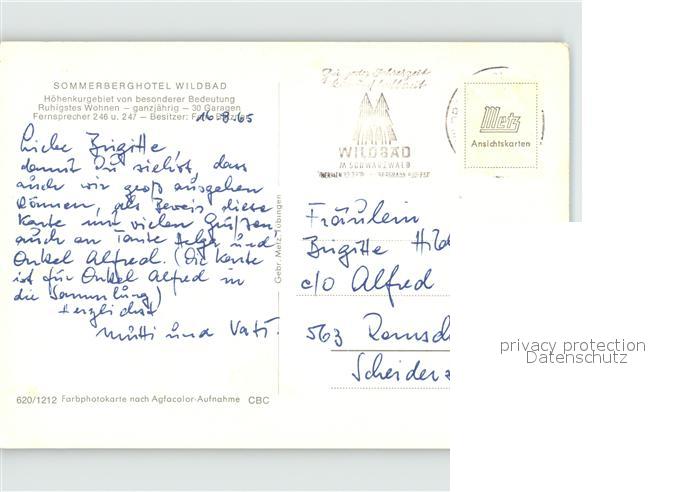 SOMMERBERGHOTEL WILDBAD
Höhenkurgebiet von besonderer Bedeutung
Ruhigstes Wohnen — ganzjährig — 30 Garagen
Fernsprecher 246 u. 247 — Besitzer:
16.8.65
Liebe Brigitte,
damit Du siehst, dass
auch wir groß ausgehen
können, als Beweis diese
Karte mit vielen Grüßen
auch an Tante Helga und
Onkel Alfred. (Die Karte
ist für Onkel Alfred in
die Sammlung)
Herzlichst
Mutti und Vati.
620/1212 Farbphotokarte nach Agfacolor-Aufnahme CBC
Gebr. Metz, Tübingen
WILDBAD
IM SCHWARZWALD
Metz
Ansichtskarten
Fräulein
Brigitte
c/o Alfred
563
privacy protection
Datenschutz